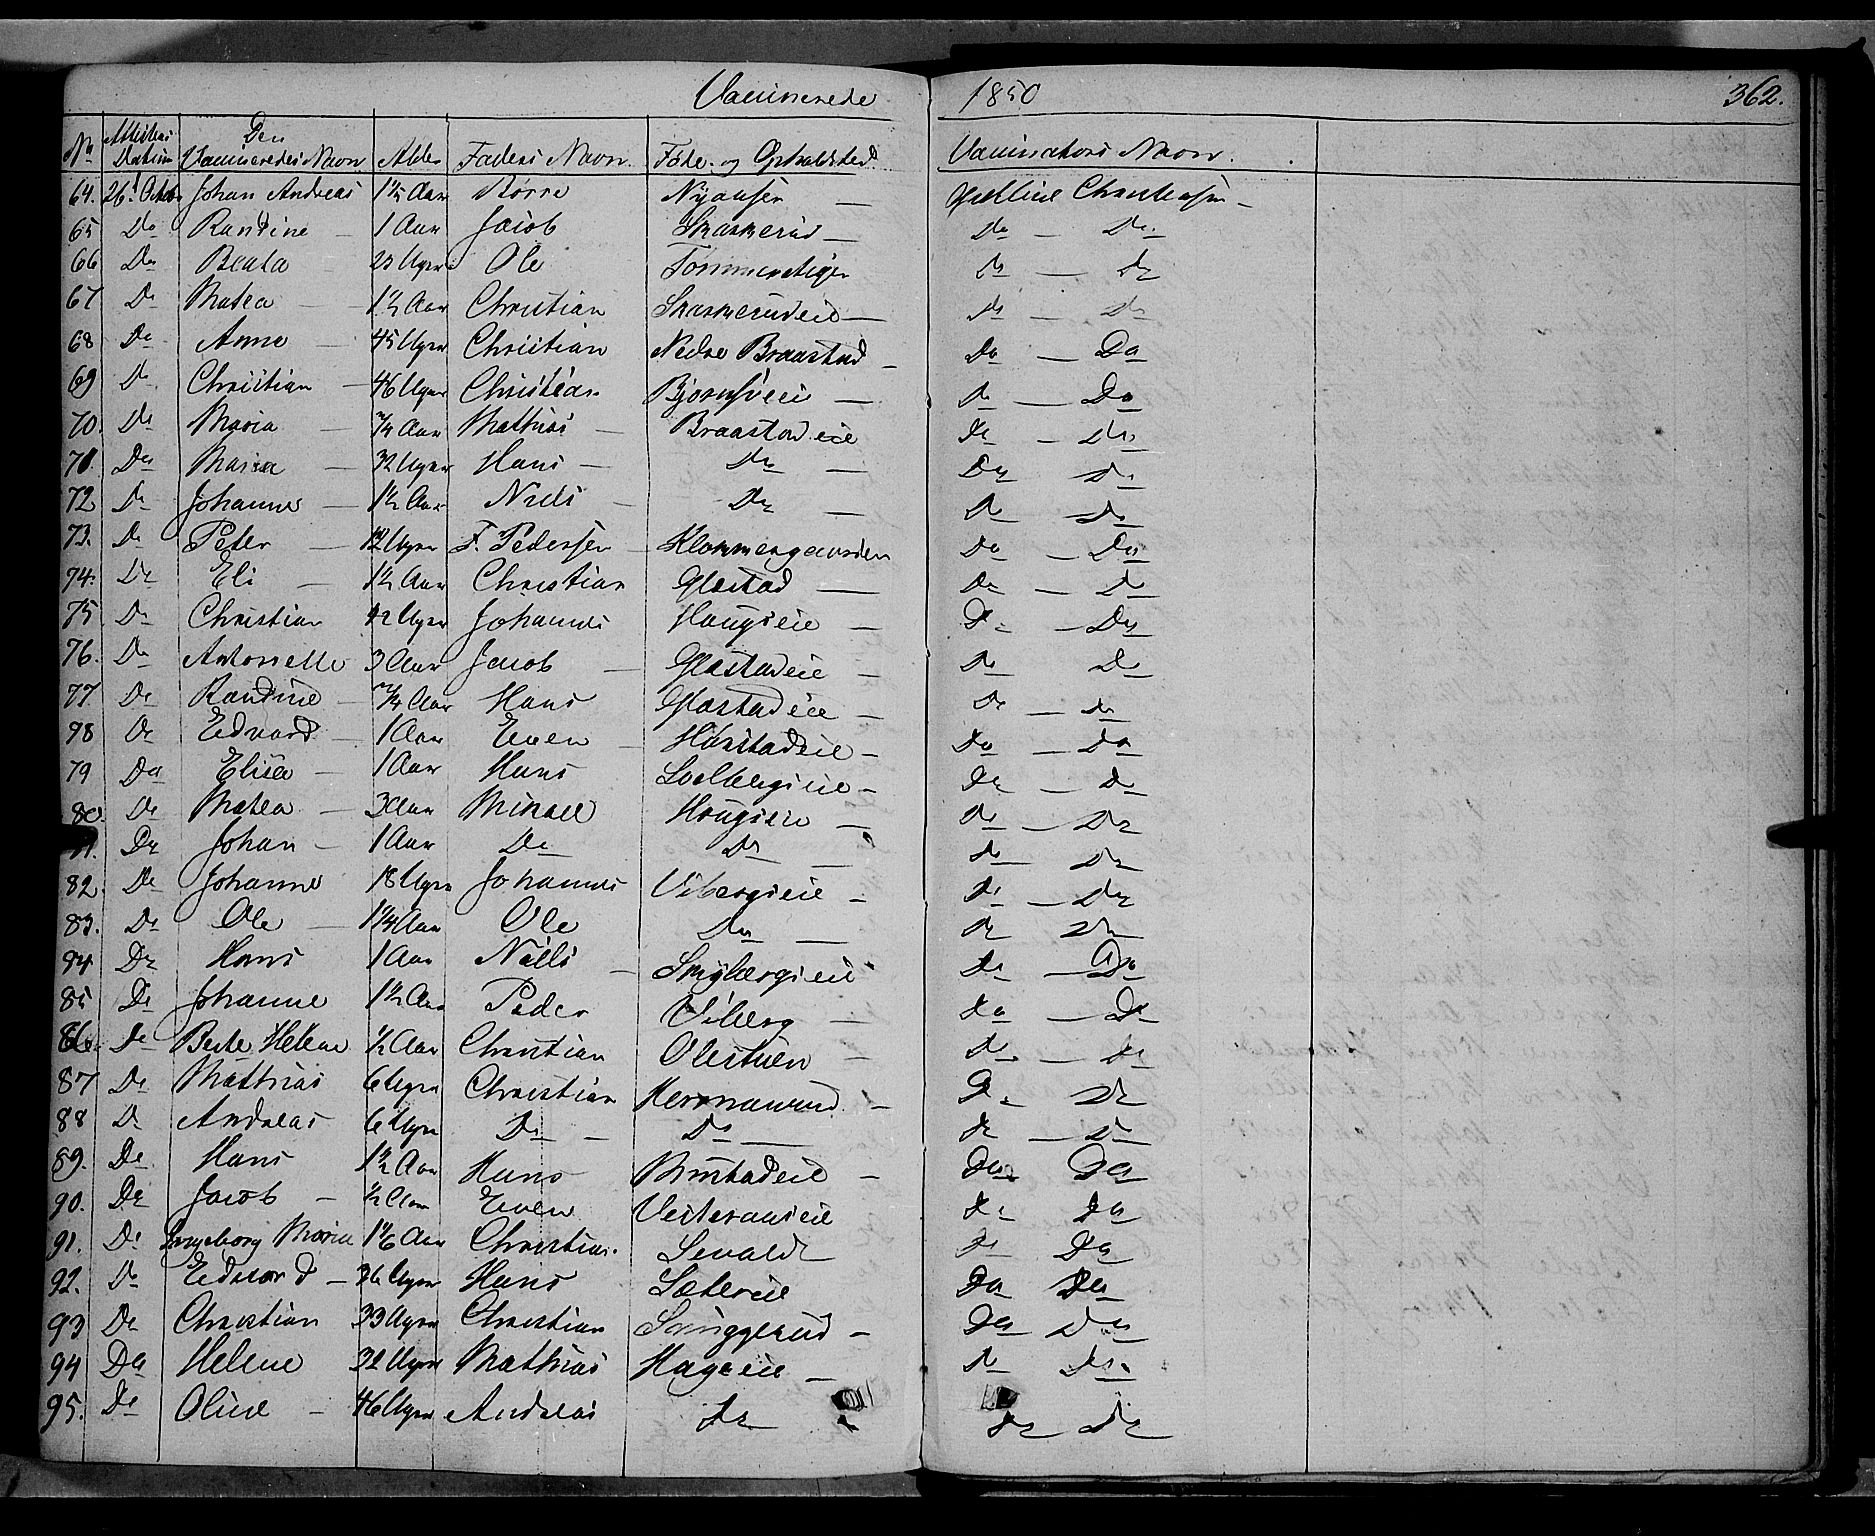 Vaccinerede 1850 362.
No Attestens Datum Den Vaccineredes Navn Alder Faders Navn Føde- og Opholdsted Vaccinators Navn.
64. 26d Octob Johan Andreas 1½ Aar Børre Nyaasen — Christensen —
65 Do Randine 1 Aar Jacob Skaskerud — Do — Do
66 Do Beata 23 Uger Ole Tømmerstigen Do — Do
67 Do Matea — 1½ Aar Christian Skaskerudeie — Do — Do
68 Do Anne — 45 Uger Christian Nedre Braastad — Do — Do
69 Do Christian — 46 Uger Christian Bjørnsveie — Do — Do
70. Do Maria — ¾ Aar Mathias — Braastadeie Do — Do
71. Do Maria — 32 Uger Hans — Do — Do Do
72 Do Johanne — 1½ Aar Niels — Do — Do — Do
73. Do Peter — 12 Uger F. Pedersen — Klommergaarden Do — Do
74. Do Eli — 1½ Aar Christian Glæstad — Do — Do
75 Do Christian 42 Uger Johannes Haugseie — Do — Do
76. Do Antonette 3 Aar Jacob — Glæstadeie — Do Do
77. Do Randine — ¾ Aar Hans Glæstadeie — Do — Do
78 Do Edvard — 1 Aar Even — Hørstadeie — Do — Do
79 Do Elisea — 1 Aar Hans Solbergseie — Do Do
80. Do Matea — 3 Aar Mikael Haugseie — Do — Do
81. Do Johan — 1 Aar Do Do — Do Do
82. Do Johanne 18 Uger Johannes Vibergseie — Do — Do
83. Do Ole — 1¼ Aar Ole Do — Do Do
84 Do Hans 1 Aar Niels — Smybergseie Do — Do
85 Do Johanne 1½ Aar Peder Viberg — Do — Do
86. Do Berte Helene ½ Aar Christian Olestuen — Do — Do
87 Do Mathias 6 Uger Christian Hermanrud — Do Do
88 Do Andreas 6 Uger Do — Do — Do — Do
89. Do Hans 1½ Aar Hans Bunstadeie — Do Do
90. Do Jacob — ½ Aar Even Vesteraaseie Do Do
91. Do Ingeborg Maria 1⅙ Aar Christian Sevald Do Do
92. Do Edvard — 36 Uger Hans Sætereie Do Do
93 Do Christian 33 Uger Christian Snuggerud — Do Do
94 Do Helene 32 Uger Mathias Hageeie — Do Do
95. Do Oline — 46 Uger Andreas Do Do Do